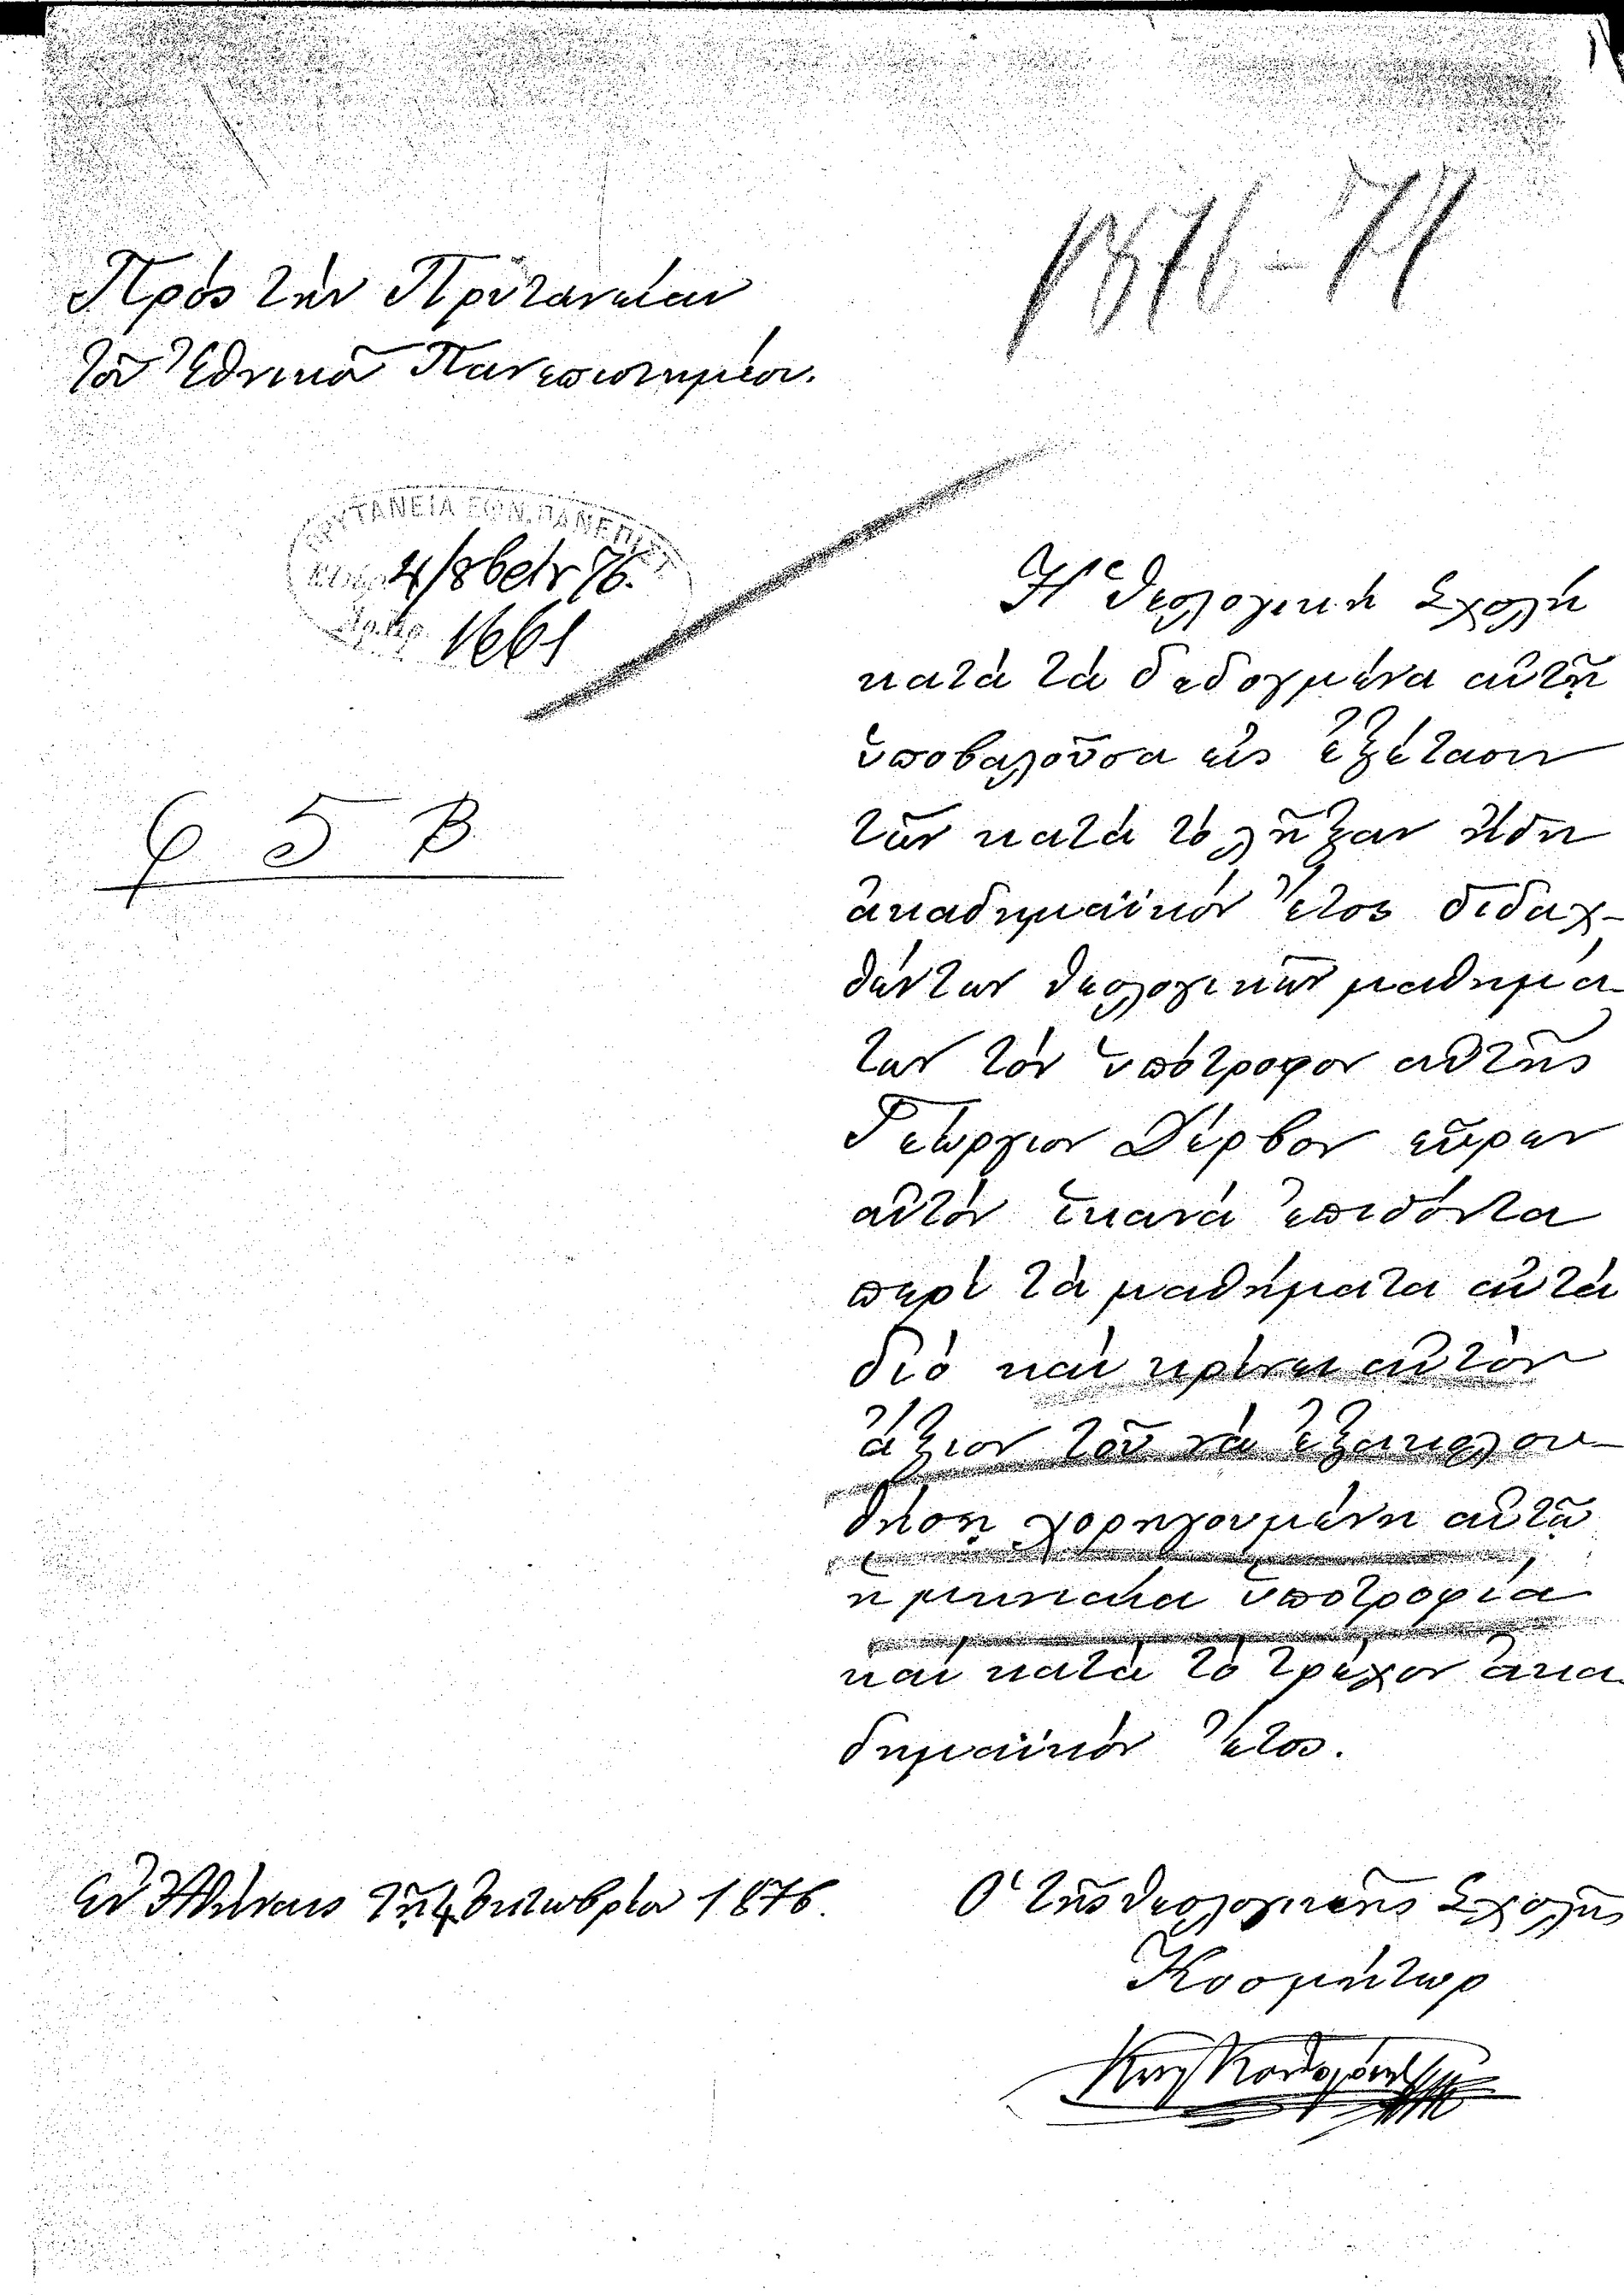 1876-77
Πρὸς τὴν Πρυτανείαν
τοῦ Ἐθνικοῦ Πανεπιστημίου.
ΠΡΥΤΑΝΕΙΑ ΕΘΝ. ΠΑΝΕΠΙΣΤ
4/8βρ 76.
Ἀρ. Πρ. 1661
φ 5 Β
Ἡ Θεολογικὴ Σχολὴ
κατὰ τὰ δεδογμένα αὐτῇ
ὑποβαλοῦσα εἰς ἐξέτασιν
τῶν κατὰ τὸ λῆξαν ἤδη
ἀκαδημαϊκὸν ἔτος διδαχ-
θέντων θεολογικῶν μαθημά-
των τὸν ὑπότροφον αὐτῆς
Γεώργιον Δέρβον εὗρεν
αὐτὸν ἱκανὰ ἐπιδόντα
περὶ τὰ μαθήματα αὐτὰ
διὸ καὶ κρίνει αὐτὸν
ἄξιον τοῦ νὰ ἐξακολου-
θήσῃ χορηγουμένη αὐτῷ
ἡ μηνιαία ὑποτροφία
καὶ κατὰ τὸ τρέχον ἀκα-
δημαϊκὸν ἔτος.
Ἐν Ἀθήναις τῇ 4 Ὀκτωβρίου 1876.
Ὁ τῆς Θεολογικῆς Σχολῆς
Κοσμήτωρ